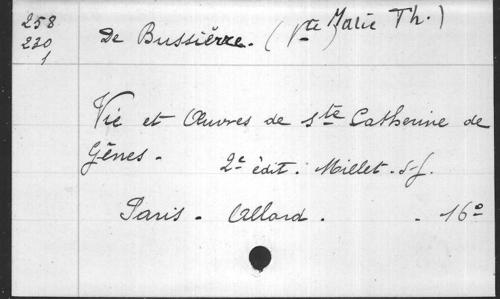 258
230
1
De Bussièrre. (Vte Marie Th.)
Vie et Œuvres de Ste Catherine de
Gênes.
2e édit. Millet. s.d.
Paris. Allard. 16°